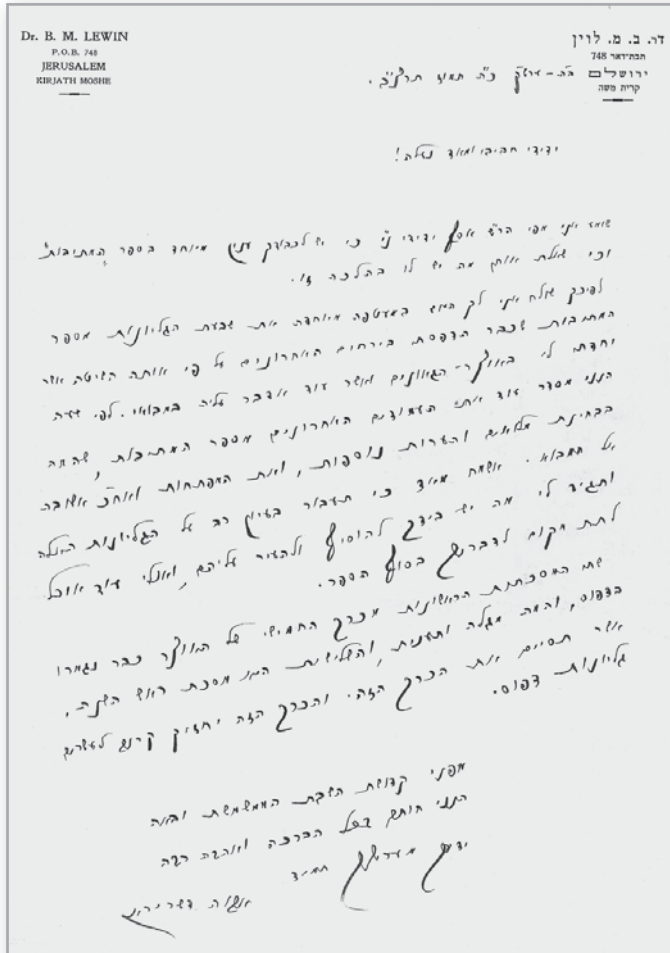 Dr. B. M. LEWIN
P.O.B. 748
JERUSALEM
KIRJATH MOSHE
דר. ב. מ. לוין
תבת־דאר 748
ירושלים
קרית משה
כ"ח תמוז תרצ"ב.
ידידי חביבי ומאוד נעלה!
שומע אני מפי הר"ש אסף ידידי נ"י כי יש לכבודך ענין מיוחד בספר "המתיבות"
וכי שאלת אותו מה יש לו בהלכה זו.
לפיכך שולח אני לך היום במעטפה מיוחדה את שבעת הגליונות מספר
המתיבות שכבר הדפסתי בירחים האחרונים על פי אותה השיטה אשר
יחדתי לי באוצר־הגאונים ואשר עוד אדבר עליה במבואי. לפי שעה
הנני מסדר עוד את העמודים האחרונים מספר המתיבות, שהמה
בבחינת מלואים והערות נוספות, ואת המפתחות ואח"כ אשובה
אל המבוא. אשמח מאד כי תעבור בעיון רב על הגליונות האלה
ותגיד לי מה יש בידך להוסיף ולהעיר עליהם, ואולי עוד אוכל
לתת מקום לדבריך בסוף הספר.
שתי המסכתות הראשונות מכרך החמישי של האוצר כבר נגמרו
בדפוס, והמה מגלה ותענית, והשלישית היא מסכת ראש השנה,
אשר תסיים את הכרך הזה. והכרך הזה יחזיק קרוב לעשרים
גליונות דפוס.
מפני קדושת השבת הממשמשת ובאה
הנני חותם בכל הברכה ואהבה רבה
ידידך מעריצך תמיד